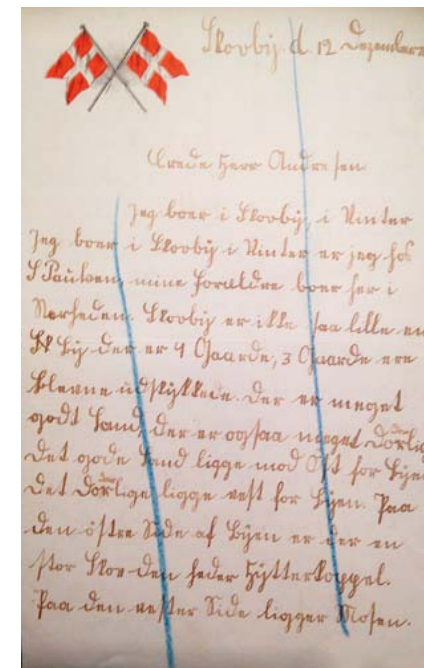 Skovby d. 12 Dezember
Ærede Herr Andresen
Jeg boer i Skovby, i Vinter
Jeg boer i Skovby i Vinter er jeg hos
S Paulsen, mine Forældre boer her i
Nærheden. Skovby er ikke saa lille en
By der er 9 Gaarde, 3 Gaarde ere
blevne udstykkede. Der er meget
godt Land, der er ogsaa meget Dorlig
Det gode Land ligge mod Ost for Byen
Det Dorlige ligge vest for Byen. Paa
den östre Side af Byen er der en
stor Skov den heder Hytterkoppel.
Paa den vester Side ligger Mosen.